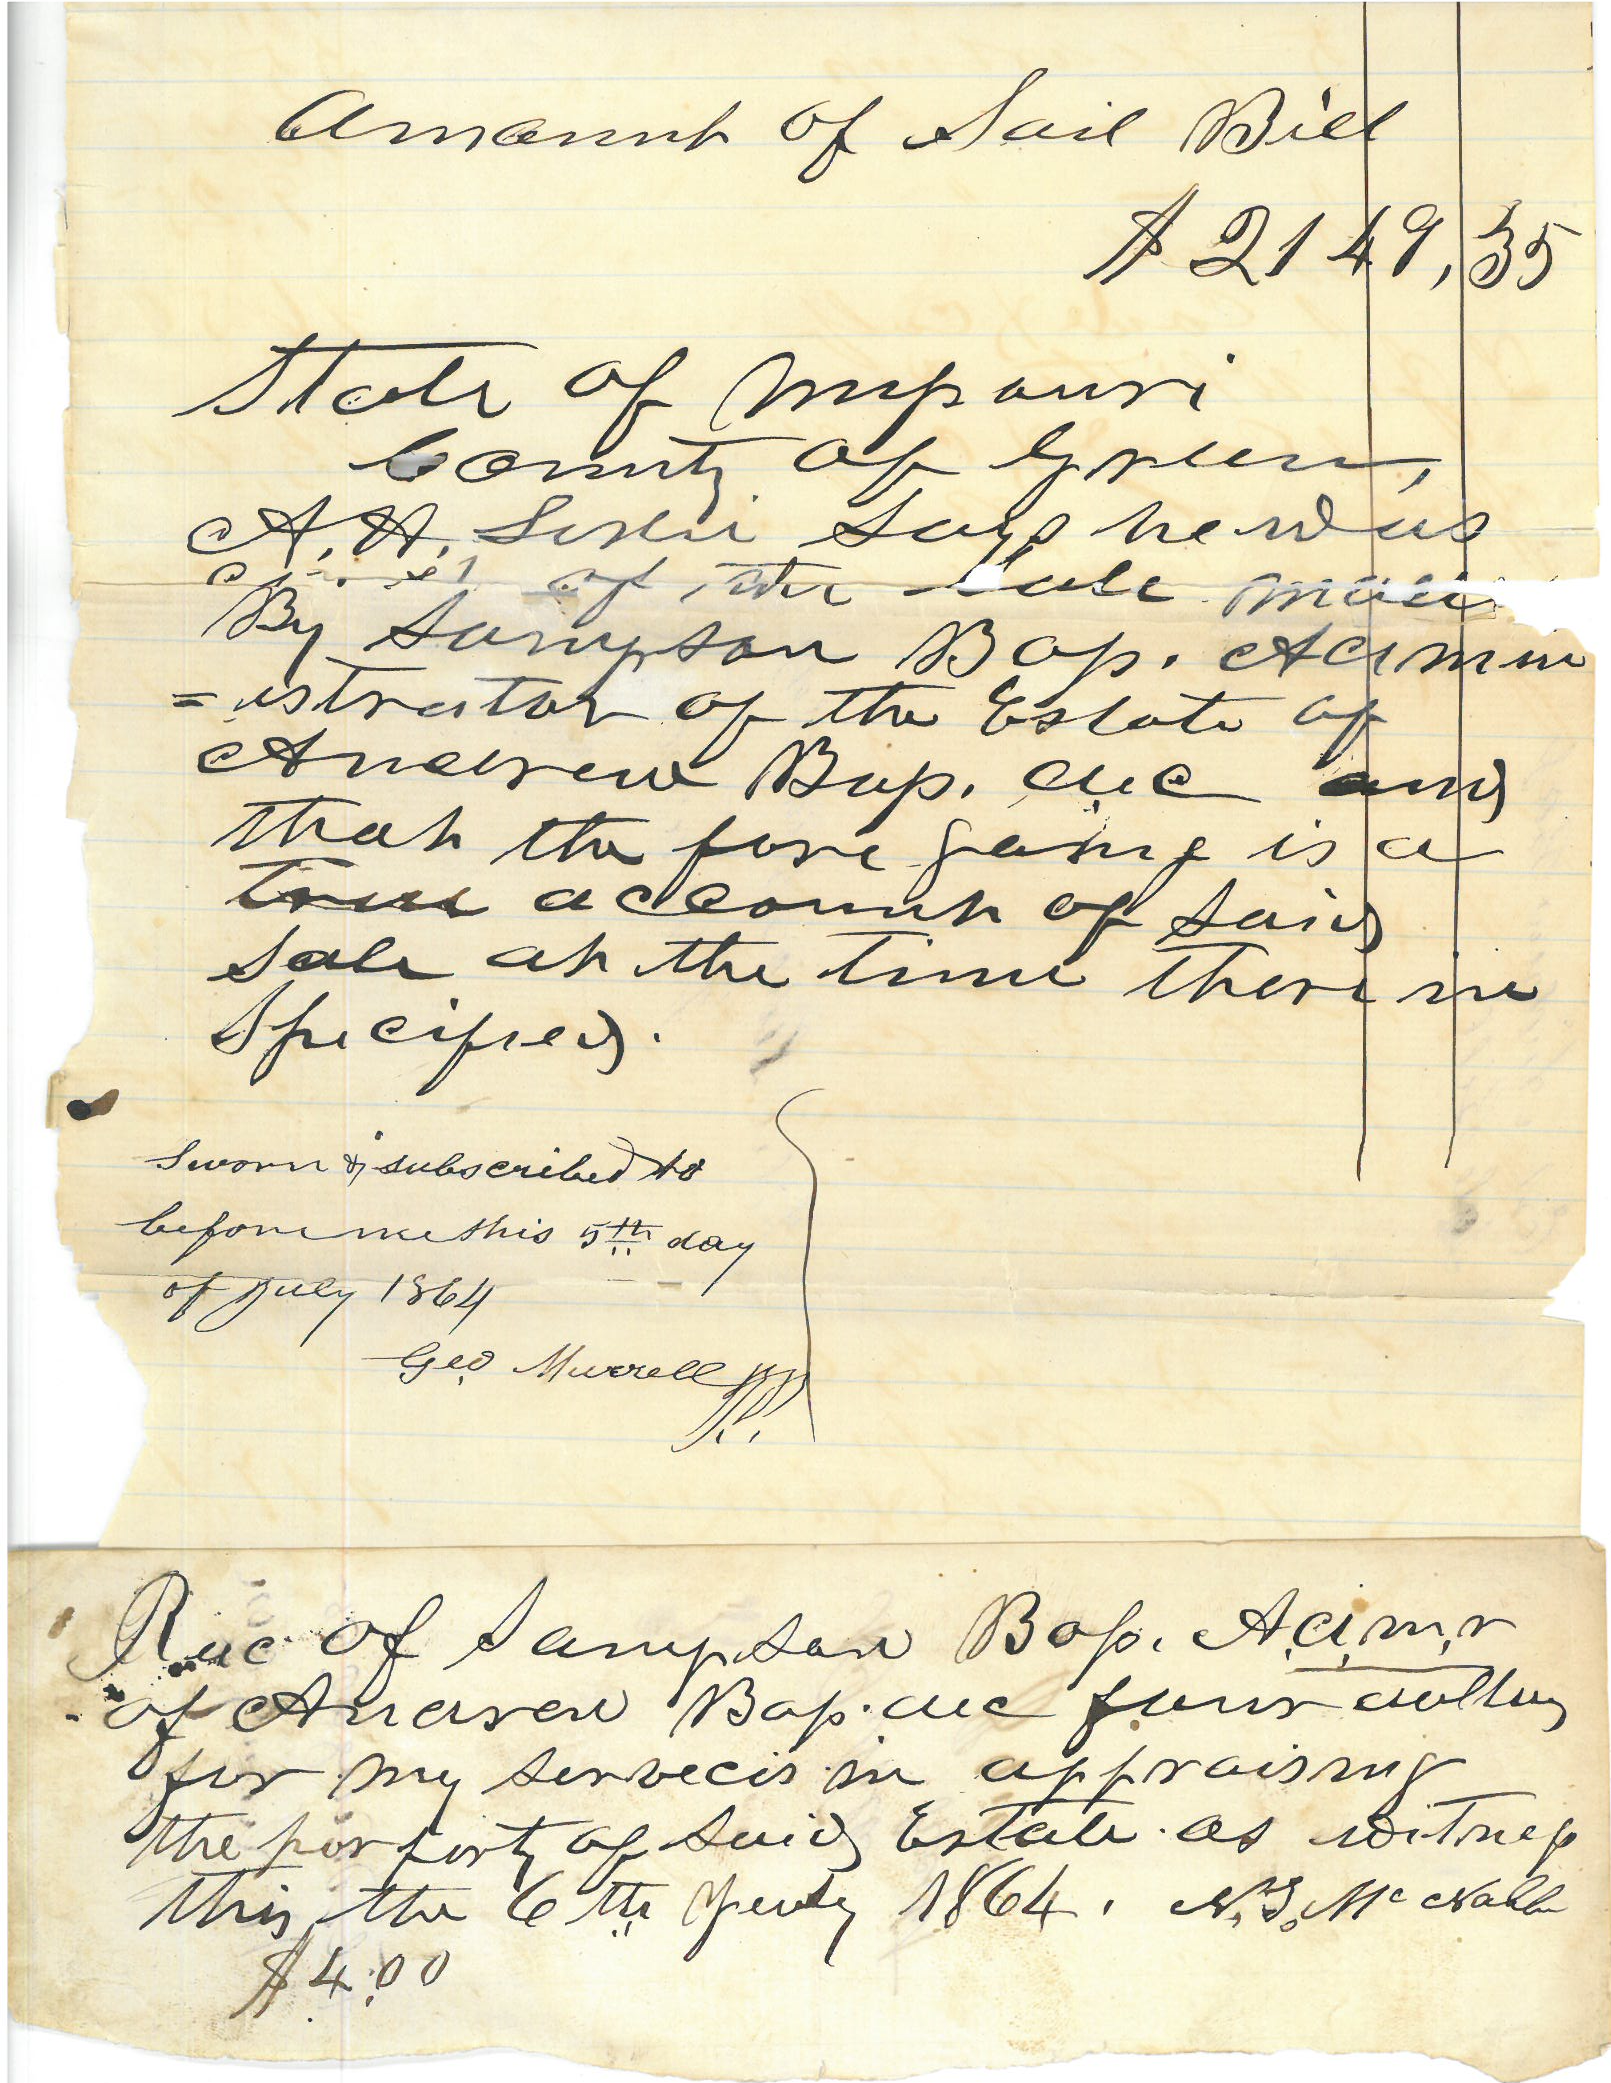 Amount of Sail Bill
$ 2149,35
State of Missouri
County of Green,
A. H. says he was
of the sale made
By Sampson Bass. Admin
=istrator of the Estate of
Andrew Bass. dec and
that the fore going is a
true account of said
sale at the time there in
Specified.
Sworn & subscribed to
before me this 5th day
of July 1864
Geo Murrell JP.
Rec of Sampson Bass. Admr
of Andrew Bass. dec four dollars
for my serveces in appraising
the porporty of said Estate as witness
this the 6th July 1864.
$4.00